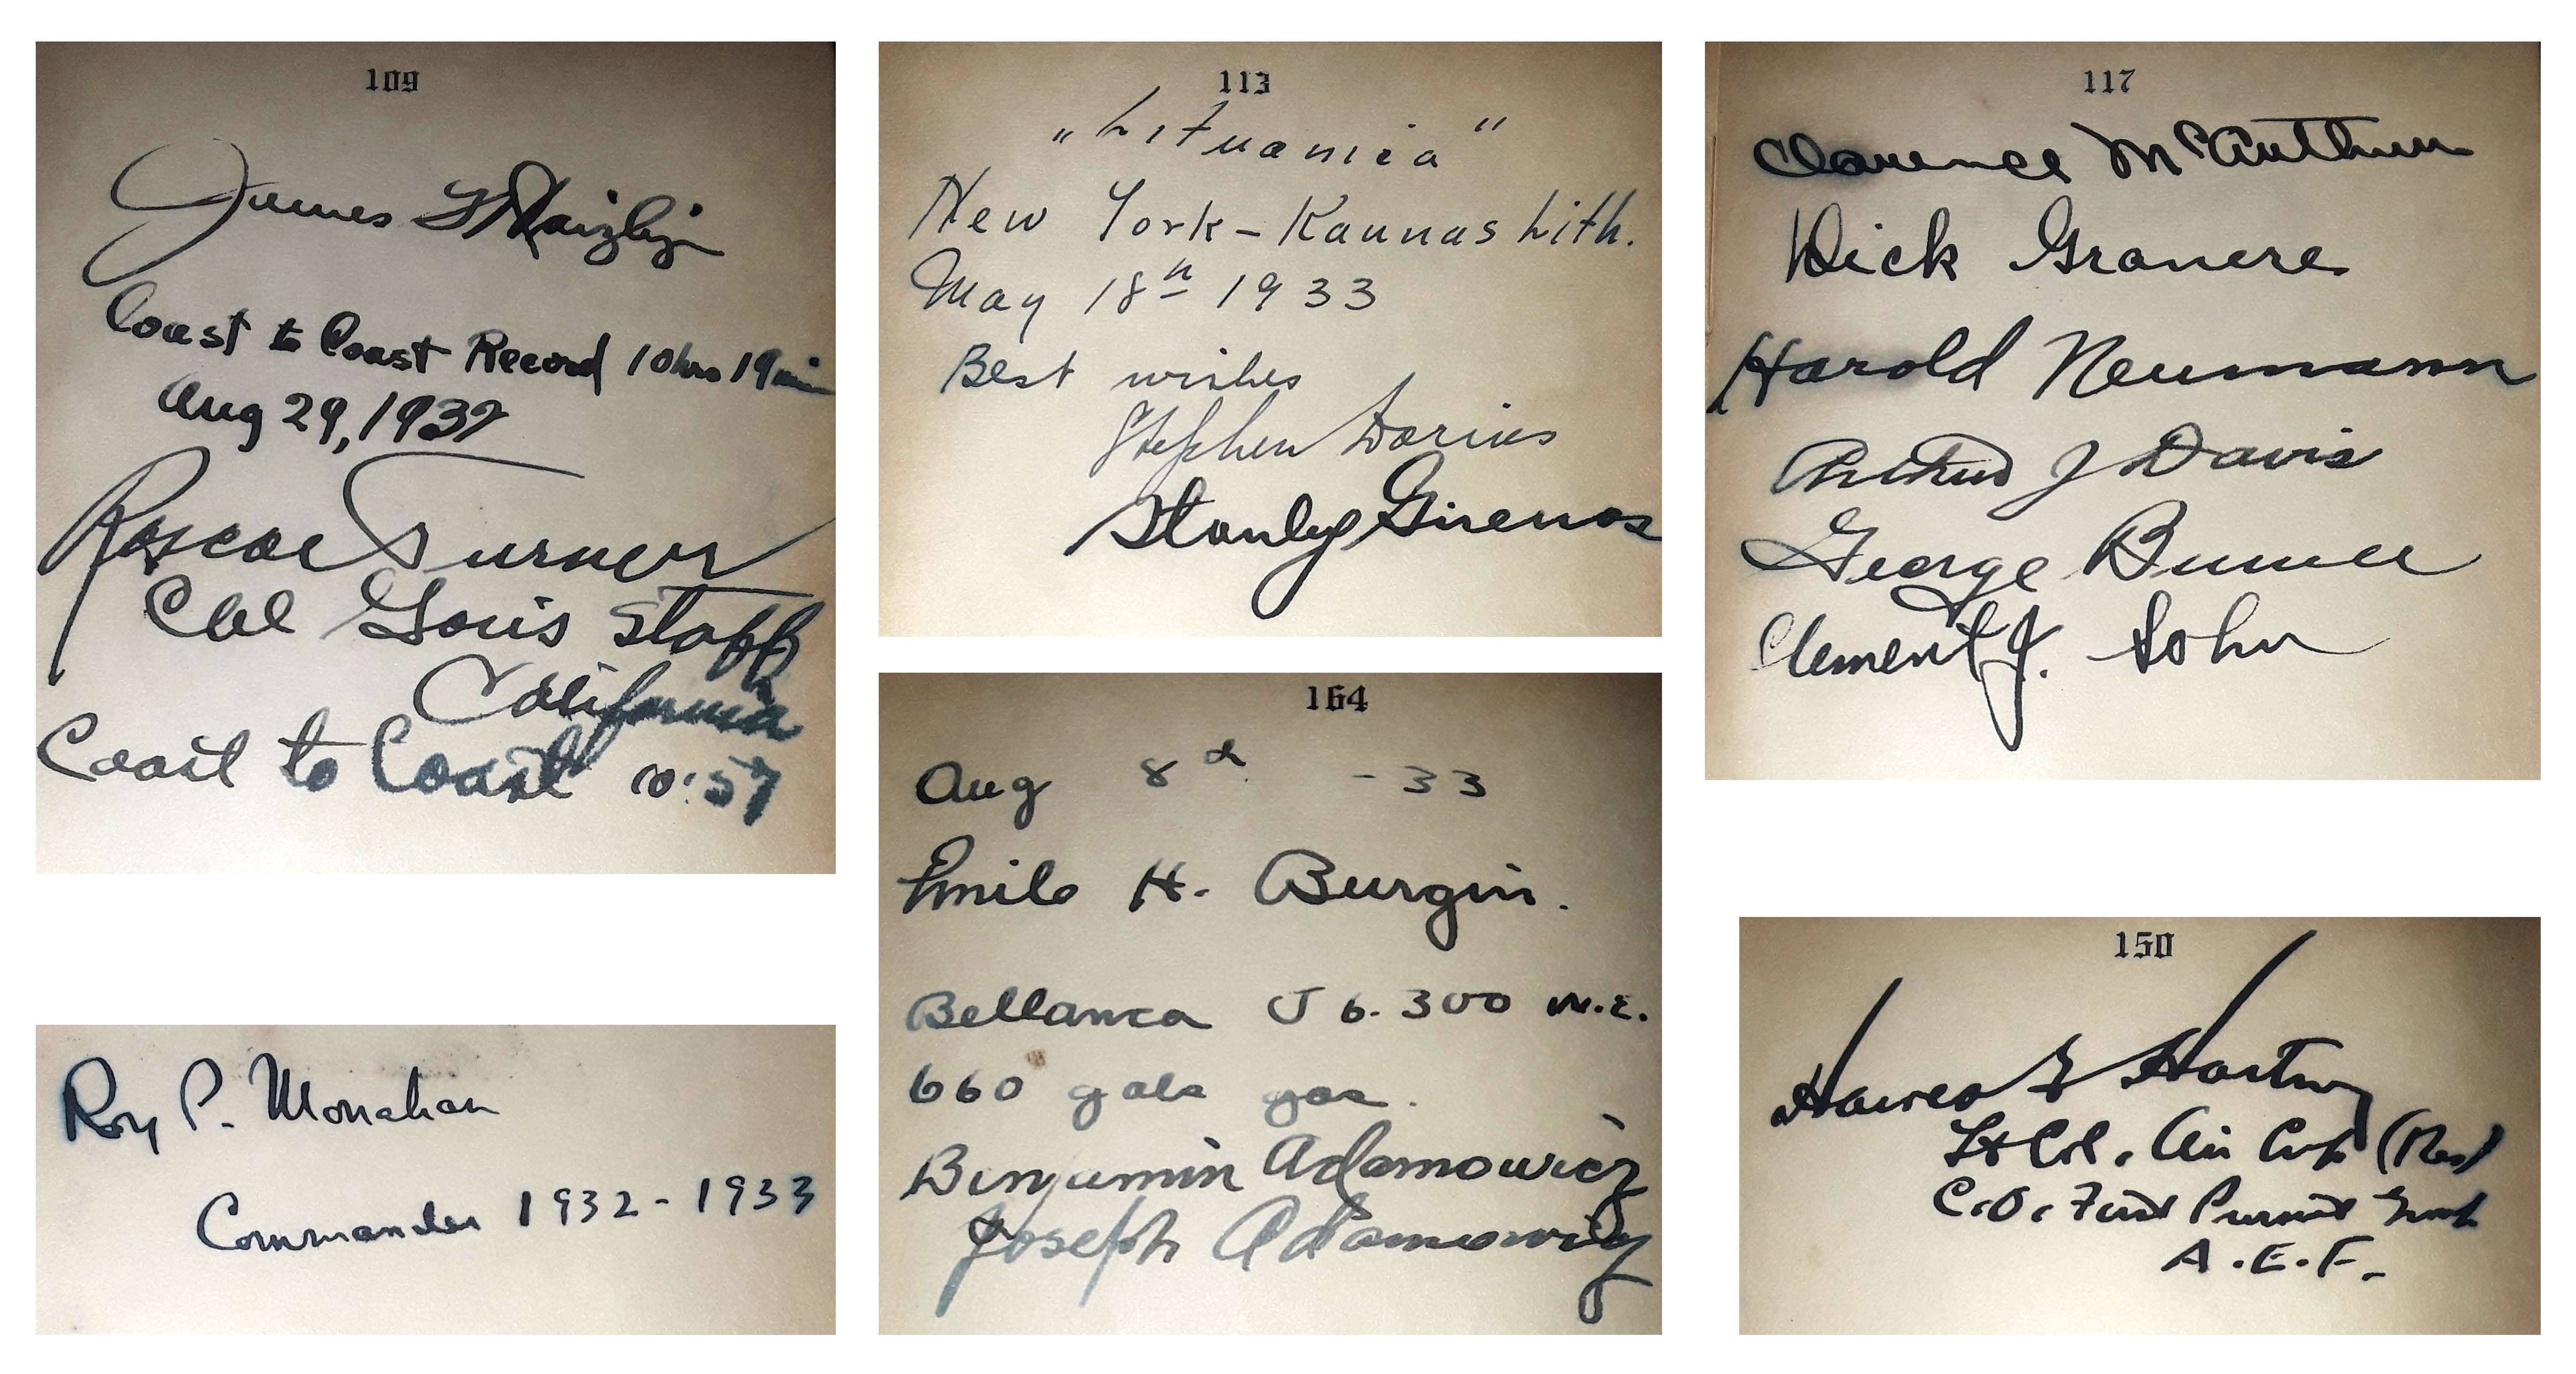 109
James Haizlip
Coast to Coast Record 10 hrs 19 min
Aug 29, 1932
Roscoe Turner
Col Gov's Staff
California
Coast to Coast 10:57
Roy P. Monahan
Commander 1932-1933
113
„Lituanica"
New York - Kaunas Lith.
May 18th 1933
Best wishes
Stephen Darius
Stanley Girenas
164
Aug 8th -33
Emile H. Burgin.
Bellanca J 6. 300
660 gals gas.
Benjamin Adamowicz
Joseph Adamowicz
117
Clarence McArthur
Dick Granere
Harold Neumann
Arthur J Davis
George
Clement J. Sohn
150
Harold E Hartney
Lt Col. Air Corps (Res)
C.O. First Pursuit Group
A.E.F.